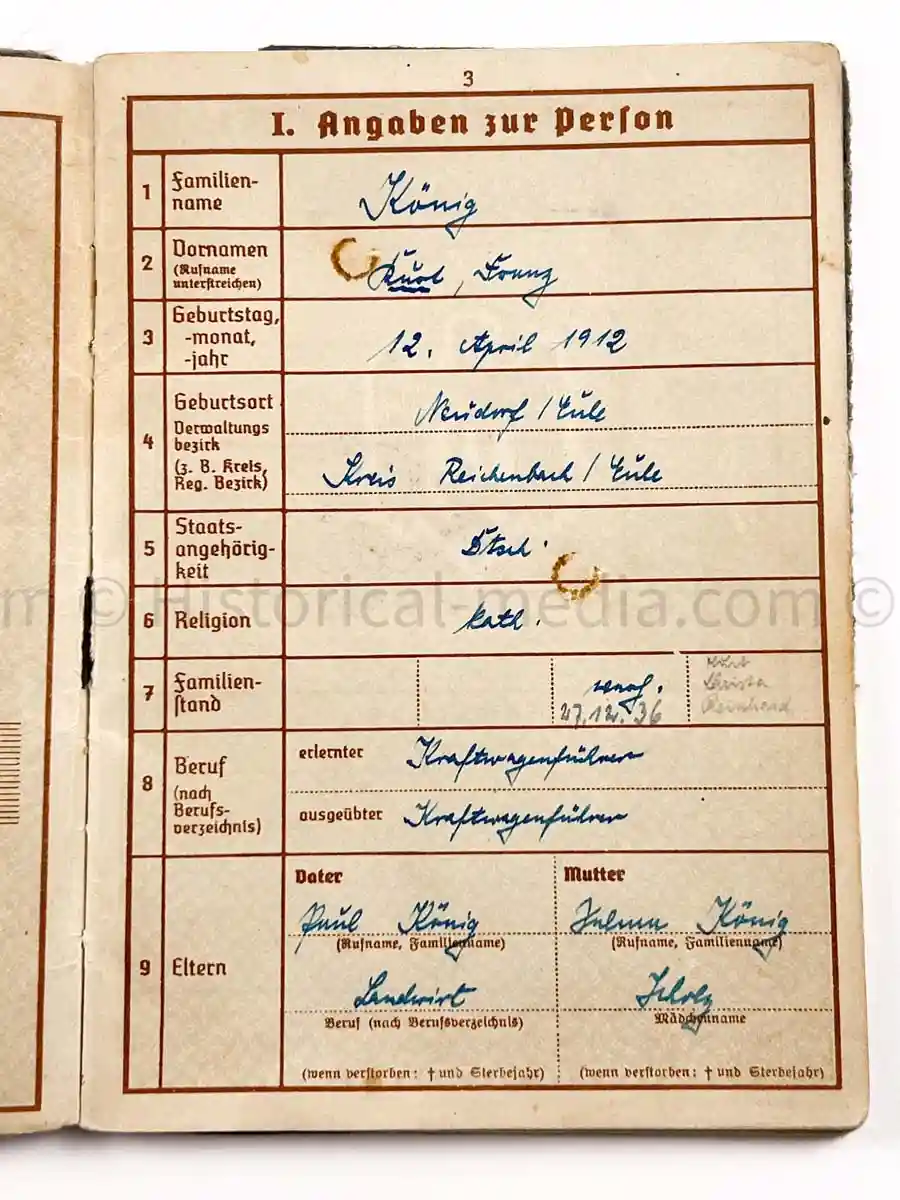 3
I. Angaben zur Person
1
Familien-
name
König
2
Vornamen
(Rufname
unterstreichen)
Kurt, Franz
3
Geburtstag,
-monat,
-jahr
12. April 1912
4
Geburtsort
Verwaltungs
bezirk
(z. B. Kreis,
Reg. Bezirk)
Neudorf / Eule
Kreis Reichenbach / Eule
5
Staats-
angehörig-
keit
Dtsch.
m © Historical-media.com ©
6
Religion
kath.
7
Familien-
stand
verh.
27.12.36
Christa
Reinhard
8
Beruf
(nach
Berufs-
verzeichnis)
erlernter
Kraftwagenführer
ausgeübter
Kraftwagenführer
9
Eltern
Vater
Paul König
(Rufname, Familienname)
Landwirt
Beruf (nach Berufsverzeichnis)
(wenn verstorben: † und Sterbejahr)
Mutter
König
(Rufname, Familienname)
Scholz
Mädchenname
(wenn verstorben: † und Sterbejahr)